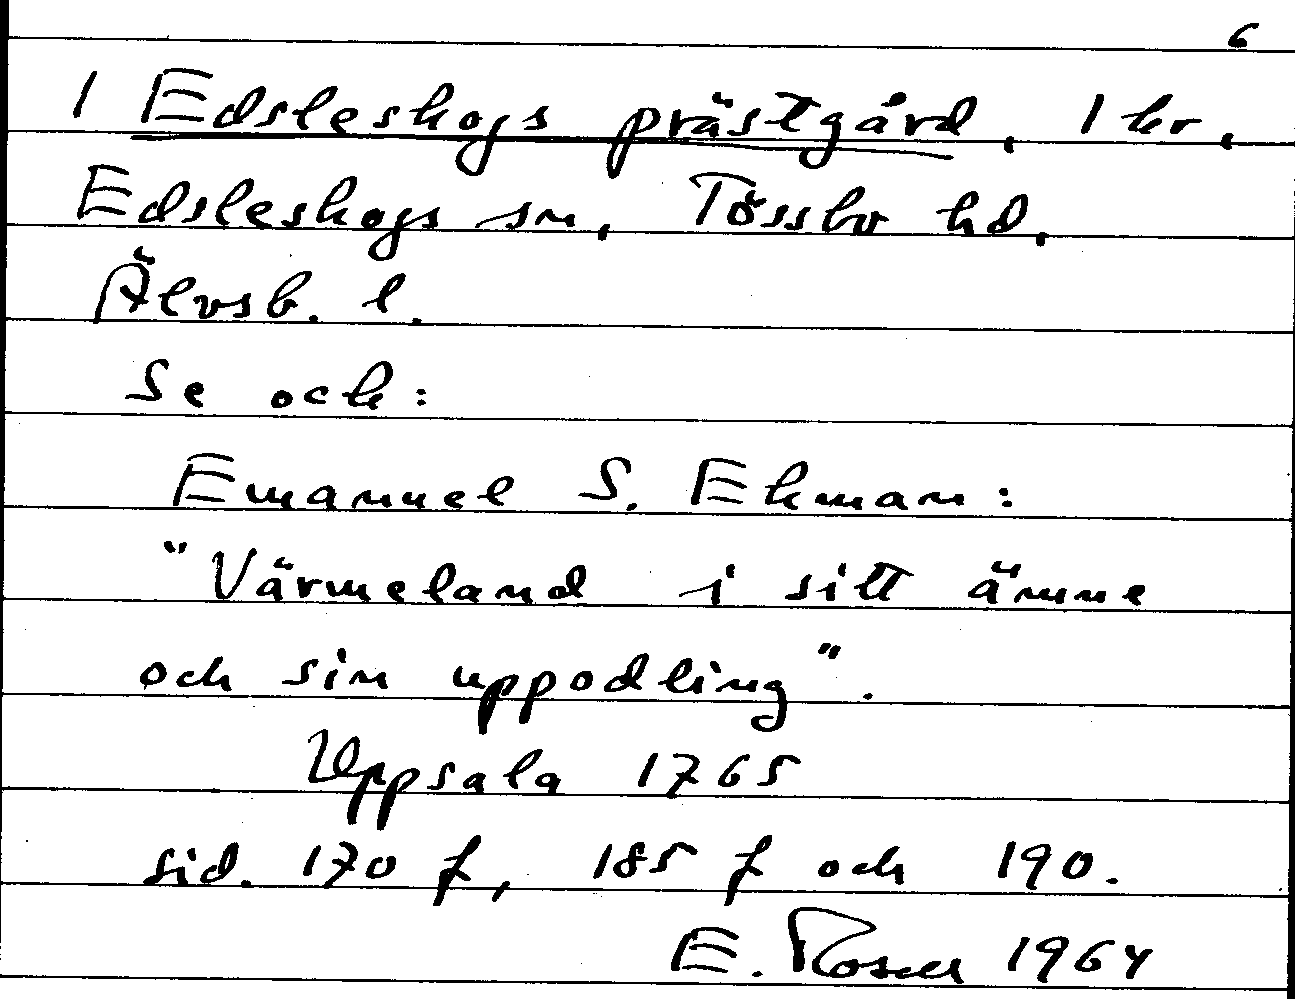 6
1 Edsleskogs prästgård, 1 kr,
Edsleskogs sn, Tössbo hd,
Älvsb. l.
Se och:
Emanuel S. Ekman:
"Värmeland i sitt ämne
och sin uppodling".
Uppsala 1765
sid. 170 f, 185 f och 190.
E. Rosell 1964